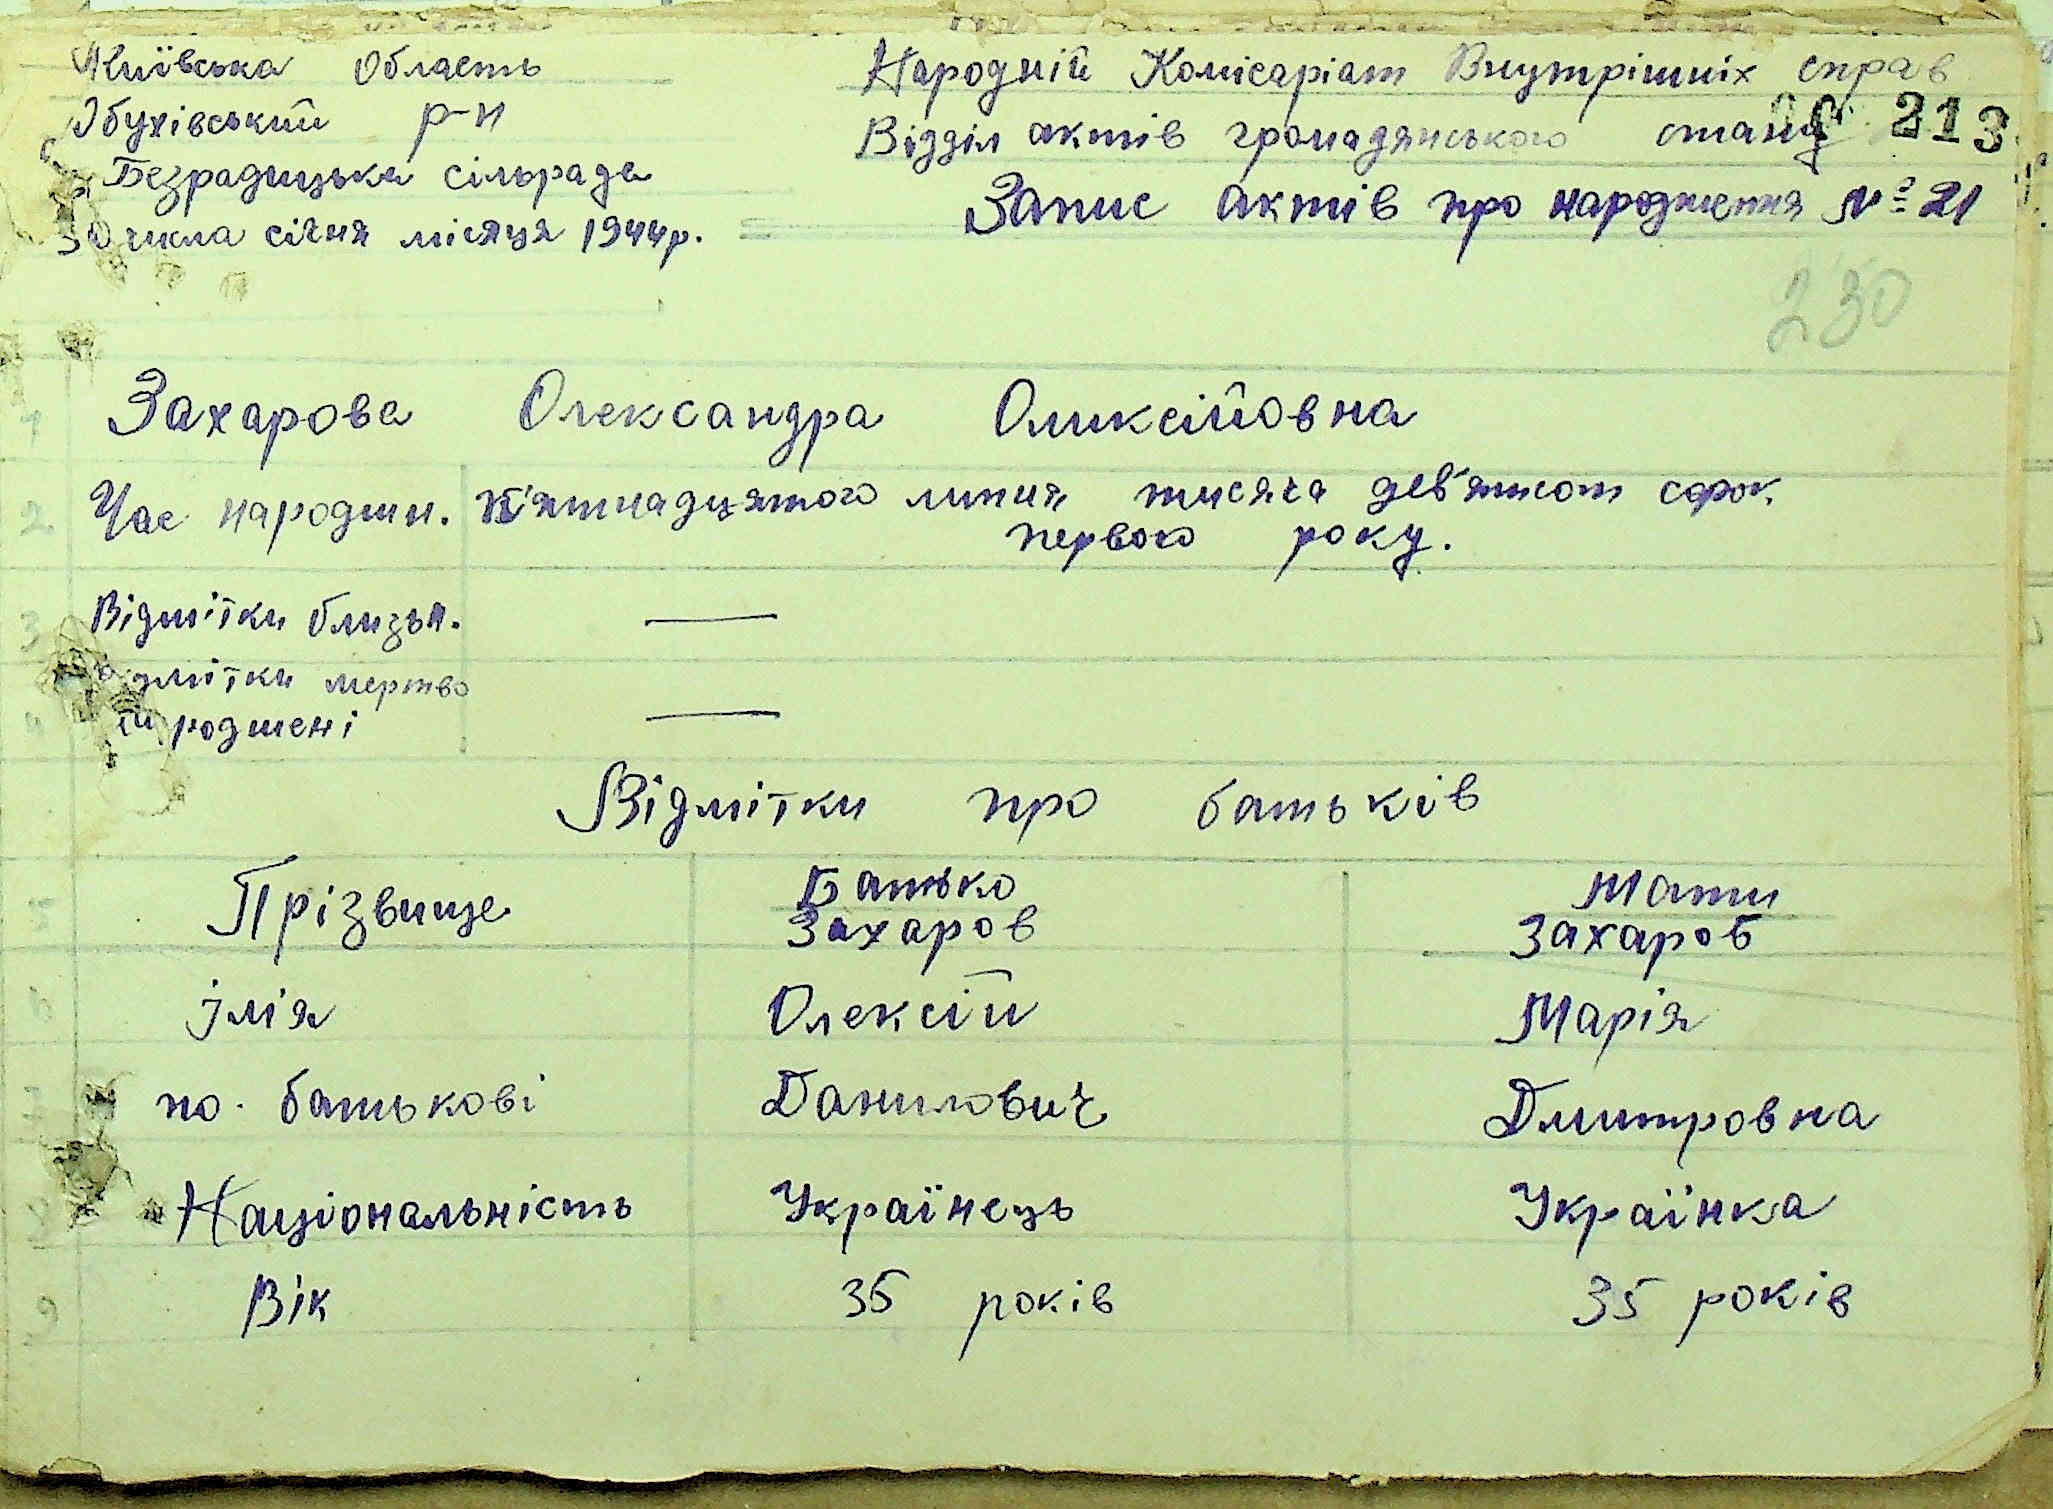 Київська Область
Обухівський р-н
Безрадицька сільрада
30 числа січня місяця 1944р.
Народній Комісаріат Внутрішніх справ
Відділ актів громадянського стану
213
Запис актів про народження № 21
230
1 Захарова Олександра Оликсійовна
2 Час народжн. П'ятнадцятого липня тисяча дев'ятсот сорок
первого року.
3 Відмітки близьн. —
4 Відмітки мертво —
народжені
Відмітки про батьків
Батько Мати
5 Прізвище Захаров Захаров
6 імія Олексій Марія
7 по-батькові Данилович Дмитровна
8 Національність Українець Українка
9 Вік 35 років 35 років